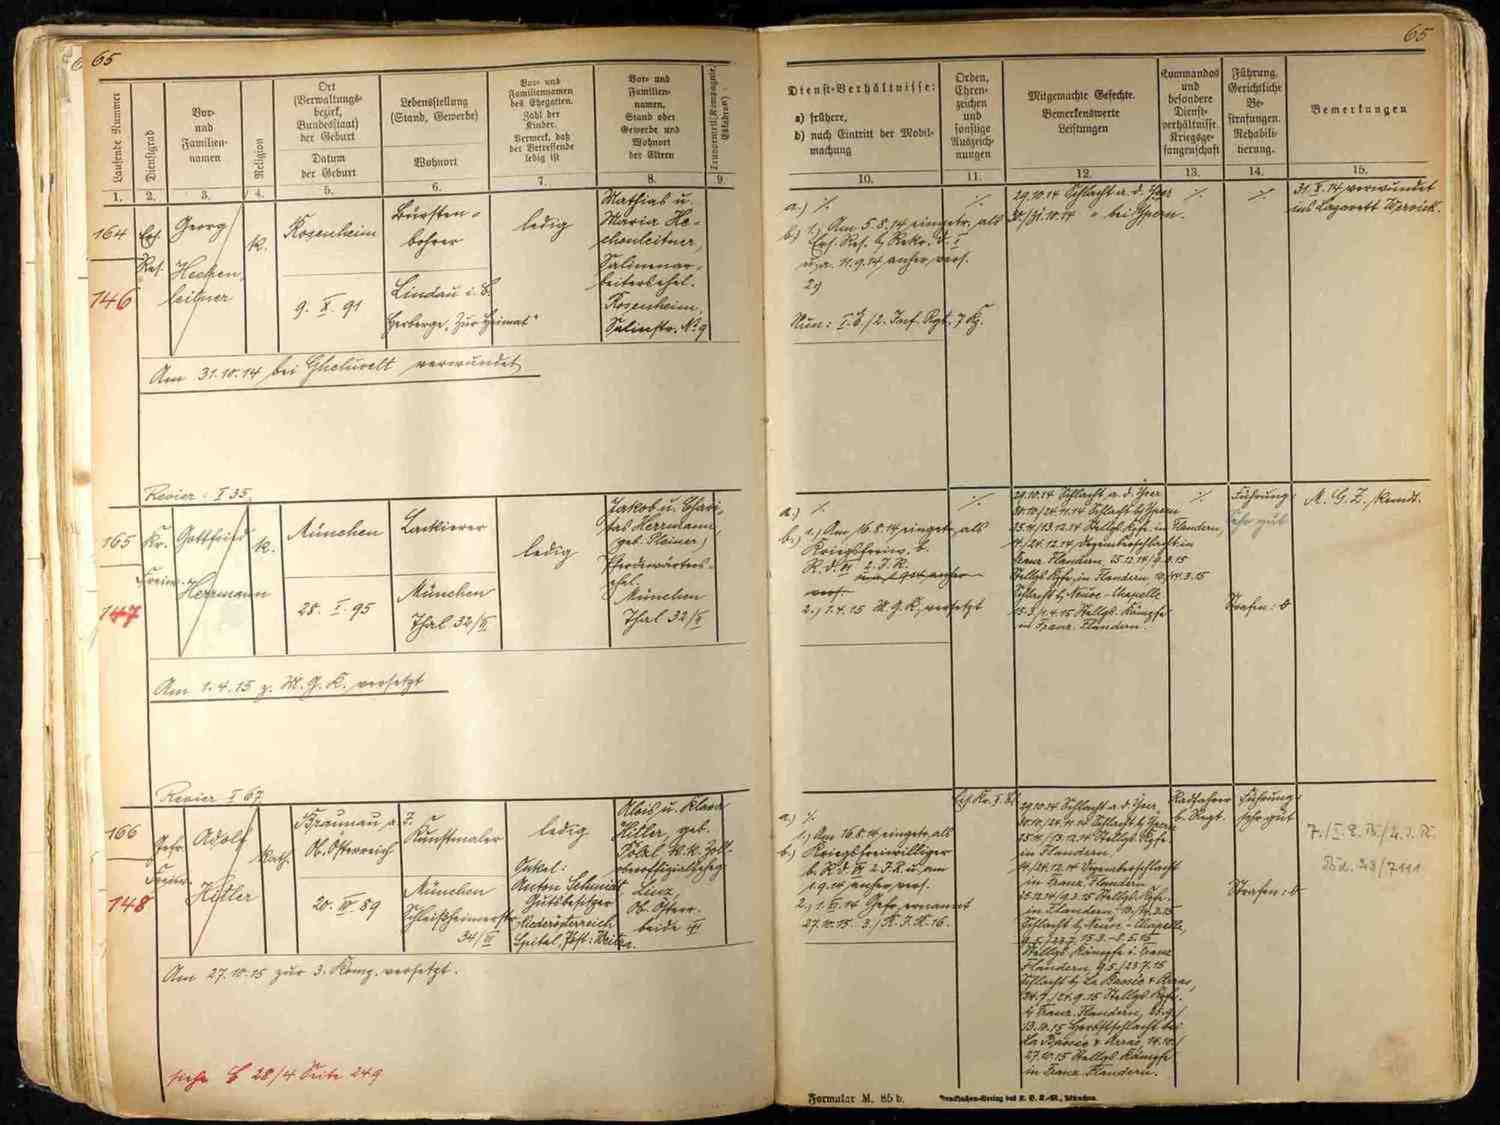 65
65
Laufende Nummer
Dienstgrad
Vor-
und
Familien-
namen
Religion
Ort
(Verwaltungs-
bezirk,
Bundesstaat)
der Geburt
Datum
der Geburt
Lebensstellung
(Stand, Gewerbe)
Wohnort
Vor- und
Familiennamen
des Ehegatten.
Zahl der
Kinder.
Vermerk, daß
der Betreffende
ledig ist
Vor- und
Familien-
namen,
Stand oder
Gewerbe und
Wohnort
der Eltern
Truppenteil (Kompagnie,
Eskadron)
Dienst-Verhältnisse:
a) frühere,
b) nach Eintritt der Mobil-
machung
Orden,
Ehren-
zeichen
und
sonstige
Auszeich-
nungen
Mitgemachte Gefechte.
Bemerkenswerte
Leistungen
Kommandos
und
besondere
Dienst-
verhältnisse.
Kriegsge-
fangenschaft
Führung.
Gerichtliche
Be-
strafungen.
Rehabili-
tierung.
Bemerkungen
1. 2. 3. 4. 5. 6. 7. 8. 9. 10. 11. 12. 13. 14. 15.
164
146
Ers.
Res.
Georg
Hechen
leitner
k.
Rosenheim
9. X. 91
Bürsten-
bohrer
Lindau i. B.
Herberge „Zur Heimat"
ledig
Mathias u.
Maria He-
chenleitner,
Salinenar-
beitersehel.
Rosenheim,
Salinstr. No 9
a.) ./.
b.) 1.) Am 5.8.14 eingetr. als
Ers. Res. b. Rekr. D. I
u. a. 11.9.14 anher vers.
2.)
Nun: I. E./2. Inf. Rgt. 7 Kp.
./.
29.10.14 Schlacht a. d. Yser
30/31.10.14 " bei Ypern.
./.
./.
31. X. 14 verwundet
ins Lazarett Werwick.
Am 31.10.14 bei Gheluvelt verwundet
Revier: I 35.
165
147
Kr.
Freiw.
Gottfried
Herrmann
k.
München
28. I. 95
Lackierer
München
Thal 32/II
ledig
Jakob u. Chari-
tas Herrmann,
(geb. Pleiner)
Pferdewärters-
ehel.
München
Thal 32/II
a.) ./.
b.) 1.) Am 16.8.14 eingetr. als
Kriegsfreiw. b.
R. D. VI 2. I. R.
vers.
2.) 1.4.15 M. G. K. versetzt
./.
29.10.14 Schlacht a. d. Yser
30.10/24.11.14 Schlacht b. Ypern
25.11/13.12.14 Stellgs. Kpfe. in Flandern,
14/24.12.14 Dezemberschlacht in
Franz. Flandern, 25.12.14/9.3.15
Stellgs. Kpfe. in Flandern 10/14.3.15
Schlacht b. Neuve-Chapelle.
15.3/1.4.15 Stellgs. Kämpfe
in Franz. Flandern.
./.
Führung:
sehr gut
Strafen: 0
M. G. Z./Remdt.
Am 1.4.15 z. M. G. K. versetzt
Revier I 67
166
148
Gefr.
Freiw.
Adolf
Hitler
kath.
Braunau a. I.
Ob. Österreich
20. IV. 89
Kunstmaler
München
Schleißheimerstr
34/III
ledig
Onkel:
Anton Schmidt
Gutsbesitzer
Niederösterreich
Spital, Post: Weitra.
Alois u. Klara
Hitler, geb.
Pölzl k. k. Zoll-
oberoffizialseheg
Linz,
Ob. Österr.
beide †
a.) ./.
1.) Am 16.8.14 eingetr. als
b.) Kriegsfreiwilliger
b. R. D. VI 2. I. R. u. am
1.9.14 anher vers.
2.) 1. XI. 14 Gefr. ernannt
27.10.15 3./R. I. R. 16.
Eis. Kr. II. Kl.
29.10.14 Schlacht a. d. Yser,
30.10/24.11.14 Schlacht b. Ypern
25.11/13.12.14 Stellgs. Kpfe
in Flandern.
14/24.12.14 Dezemberschlacht
in Franz. Flandern
25.12.14/9.3.15 Stellgs. Kpfe.
in Flandern, 10/14.3.15
Schlacht b. Neuve-Chapelle,
15.3.-8.5.15
Stellgs. Kämpfe i. Franz.
Flandern 9.5./23.7.15
Schlacht b. La Bassée & Arras,
24.7./24.9.15 Stellgs. Kpfe.
i. Franz. Flandern, 25.9/
13.10.15 Herbstschlacht bei
La Bassée & Arras, 14.10/
27.10.15 Stellgs. Kämpfe
in Franz. Flandern.
Radfahrer
b. Regt.
Führung:
sehr gut
Strafen: 0
7./I. E. B./2. I. R.
Am 27.10.15 zur 3. Komp. versetzt.
siehe 28/4 Seite 249
Formular M. 85 b.